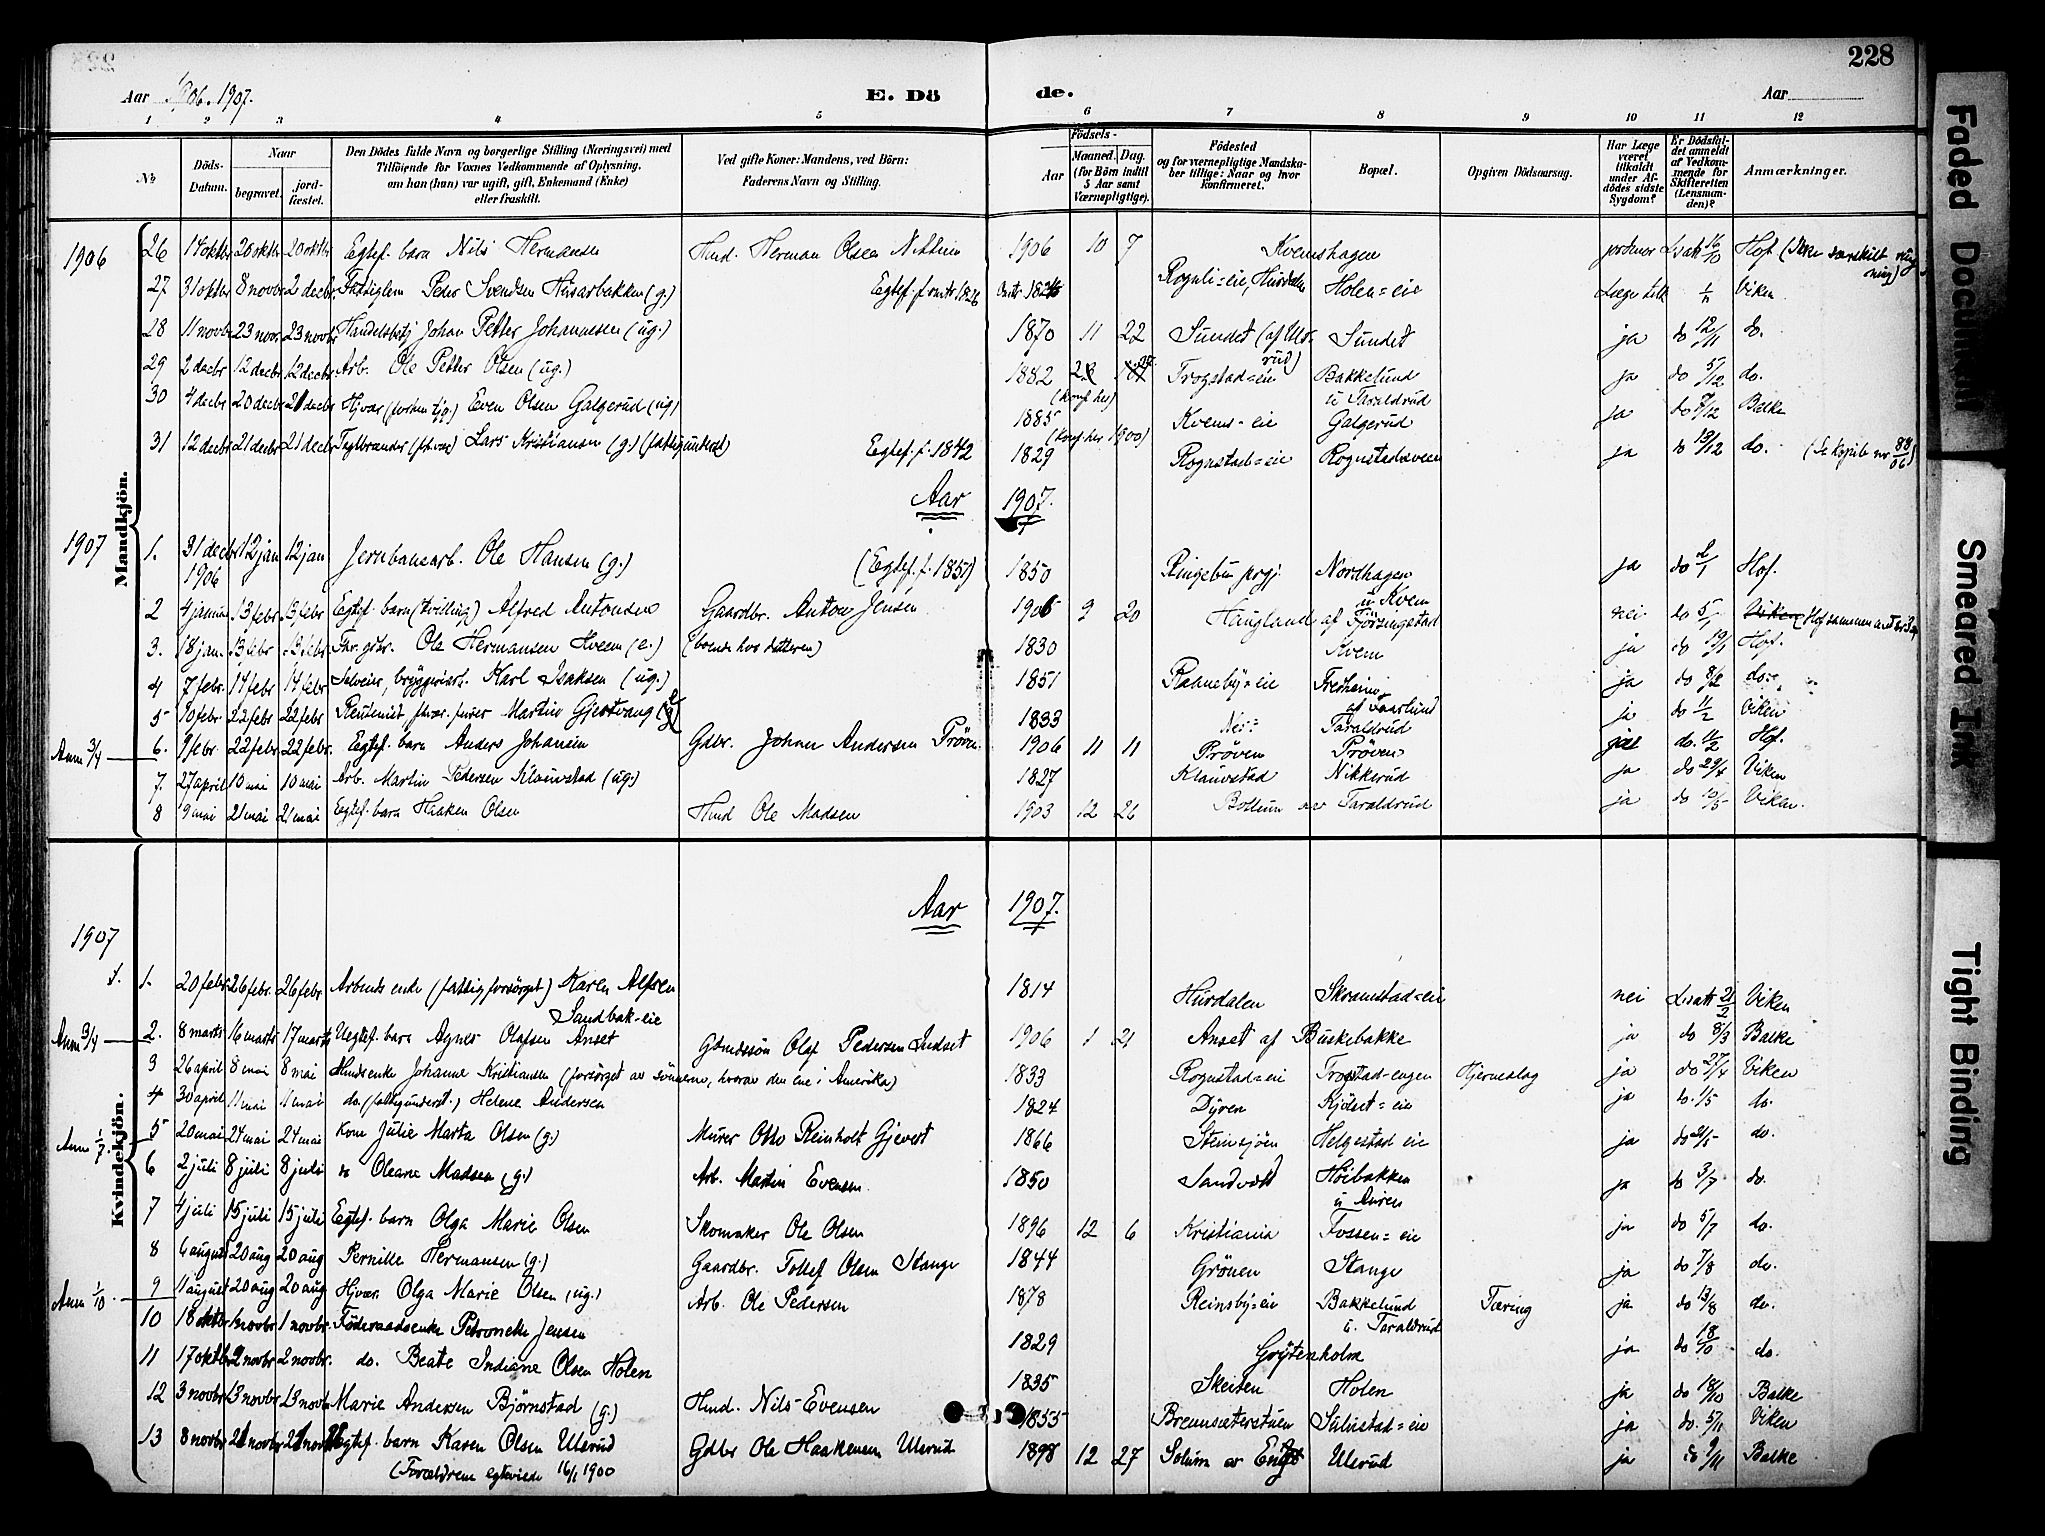 228
Aar 1906. 1907. E. Dö de. Aar
1 2 3 4 5 6 7 8 9 10 11 12
No Döds-Datum. Naar begravet. jordfæstet. Den Dödes fulde Navn og borgerlige Stilling (Næringsvei) med Tilföiende for Voxnes Vedkommende af Oplysning, om han (hun) var ugift, gift, Enkemand (Enke) eller fraskilt. Ved gifte Koner: Mandens, ved Börn: Faderens Navn og Stilling. Födsels- Aar Maaned. Dag. (for Börn indtil 5 Aar samt Værnepligtige). Födested og for værnepligtige Mandskaber tillige: Naar og hvor konfirmeret. Bopæl. Opgiven Dödsaarsag. Har Læge været tilkaldt under Afdödes sidste Sygdom? Er Dödsfaldet anmeldt af Vedkommende for Skifteretten (Lensmanden)? Anmærkninger.
Mandkjön.
1906 26 14 oktbr 20 oktbr 20 oktbr Egtef. barn Nils Hermansen Hmd. Herman Olsen 1906 10 7 Kvemshagen jordmor 16/10 Hof
27 31 oktbr 8 novbr 2 decbr Fattiglem Peder Svendsen Husarbakken (g.) Egtef. f. omtr. 1826 Holen=eie Viken
28 11 novbr 23 novbr 23 novbr Johan Petter Johannesen (ug.) 1870 11 22 Sundet Sundet ja do 12/11 do.
29 2 decbr 12 decbr 12 decbr Arb. Ole Petter Olsen (ug.) 1882 Trogstad=eie Bakkelund u Taraldrud ja do 5/12 do.
30 4 decbr 20 decbr 21 decbr Even Olsen Galgerud (ug) 1885 (konf. her 1900) Kvems-eie Galgerud ja do 7/12 Balke
31 12 decbr 21 decbr 21 decbr Teglbrænder Lars Kristiansen (g.) Egtef. f. 1842 1829 Rognstad=eie Rognstadsveen ja do 13/12 do. 88/06
Aar 1907.
1907 1. 31 decbr 1906 12 jan 12 jan Jernbanearb. Ole Hansen (g.) (Egtef. f. 1851) 1850 Ringebu prgj. Nordhagen u Kvem ja do 2/1 Hof.
2 4 januar 13 febr 13 febr Egtef. barn (tvilling) Alfred Antonsen Gaardbr. Anton Jensen 1906 9 20 Haugland af Fjösingstad nei do 5/1 Viken (Hof
3. 18 jan. 13 febr 13 febr Ole Hermansen Kveem (e.) (boende hos datteren) 1830 Kvem ja do 19/1 Hof.
4 7 febr. 14 febr 14 febr Karl Isaksen (ug.) 1851 Rahneby=eie ja do 8/2 do.
5 10 febr 22 febr 22 febr Martin Gjestvang 1833 Nes= Taraldrud ja do 11/2 Viken
Anm 3/4 6. 9 febr. 22 febr. 22 febr. Egtef. barn Anders Johansen Gdbr. Johan Andersen Prövn 1906 11 11 Pröven Pröven ja do. 11/2 Hof.
7. 27 april 10 mai 10 mai Arb. Martin Pedersen Klauvstad (ug.) 1827 Klauvstad Nikkerud ja do 29/4 Viken
8 9 mai 21 mai 21 mai Egtef. barn Haaken Olsen Hmd Ole Madsen 1903 12 26 Taraldrud ja do 10/5 Viken.
Kvindekjön.
1907 Aar 1907.
1. 20 febr 26 febr. 26 febr. Arbeids enke (fattigforsörget) Karen Alfsen Sandbak-eie 1814 Hurdalen Skramstad=eie nei 21/2 Viken
Anm 3/4 2. 8 marts 16 marts 17 marts Uegtef. barn Agnes Olafsen Anset Gdmdssön Olaf Pedersen Indset 1906 1 21 Anset af Buskebakke ja do 8/3 Balke
3 26 april 8 mai 8 mai Hmdsenke Johanne Kristiansen (forsörget av sönnerne, hvorav den ene i Amerika) 1833 Rognstad=eie Trogstad-engen Hjerneslag ja do 27/4 Viken
4 30 april 11 mai 11 mai do. (fattigunderst.) Helene Andersen 1824 Dyren Kjölset=eie ja do. 1/5 do.
Anm 1/7 5 20 mai 24 mai 24 mai Kone Julie Marta Olsen (g.) Murer Otto Reinholt Gjevert 1866 Steinsjöen Helgestad eie ja do 21/5 do.
6 2 juli 8 juli 8 juli Oleane Madsen (g.) Arb. Martin Evensen 1850 Sandvold Höibakken ja do 3/7 do.
7 4 juli 15 juli 15 juli Egtef. barn Olga Marie Olsen Skomaker Ole Olsen 1896 12 6 Kristiania Fossen=eie ja do 5/7 do.
8 6 august 20 aug 20 aug Pernille Hermansen (g.) Gaardbr. Tollef Olsen Stange 1844 Grönen Stange ja do 7/8 do.
Anm 1/10 9 11 august 20 aug 20 aug Hjvær. Olga Marie Olsen (ug.) Arb. Ole Pedersen 1878 Reinsby=eie Bakkelund u. Taraldrud Tæring ja do 13/8 do.
10 18 oktbr 1 novbr 1 novbr. Föderaadsenke Petronelle Jensen 1829 Gröjtenholm ja do 18/10 do.
11 17 oktbr 2 novbr 2 novbr. do. Beate Indiane Olsen Holen 1835 Skeisen Holen ja do 18/10 Balke
12 3 novbr 13 novbr 13 novbr Marie Andersen Bjørnstad (g.) Hmd. Nils Evensen 1855 Bremsæterstuen Sulustad=eie ja do. 5/11 Viken
13 8 novbr 21 novbr 21 novbr Egtef. barn Karen Olsen Ulsrud Gdbr Ole Haakensen Ulsrud 1898 12 27 Ulsrud ja do 9/11 Balke
(Forældrene egteviede 16/1 1900
Faded Document
Smeared Ink
Tight Binding